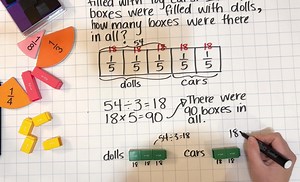 filled with toy cars. 
boxes were filled with dolls,
how many boxes were there
in all?
54
18 18 18 18 18
1/5 1/5 1/5 1/5 1/5
dolls cars
54÷3=18
18×5=90
There were
90 boxes in
all.
54÷3=18
dolls cars
18 18 18 18 18
18
1/3
1/3
1/4